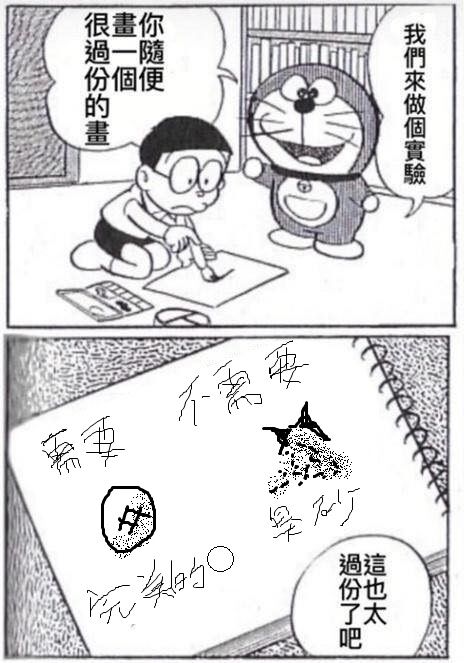 我們來做個實驗
你隨便
畫一個
很過份的畫
不需要
需要
完美的
這也太
過份了吧